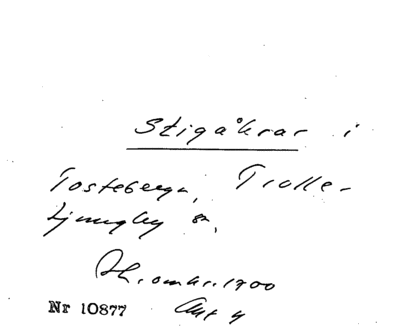 Stigåkrar i
Tosteberga, Trolle-
Ljungby sn,
omkr. 1700
Nr 10877